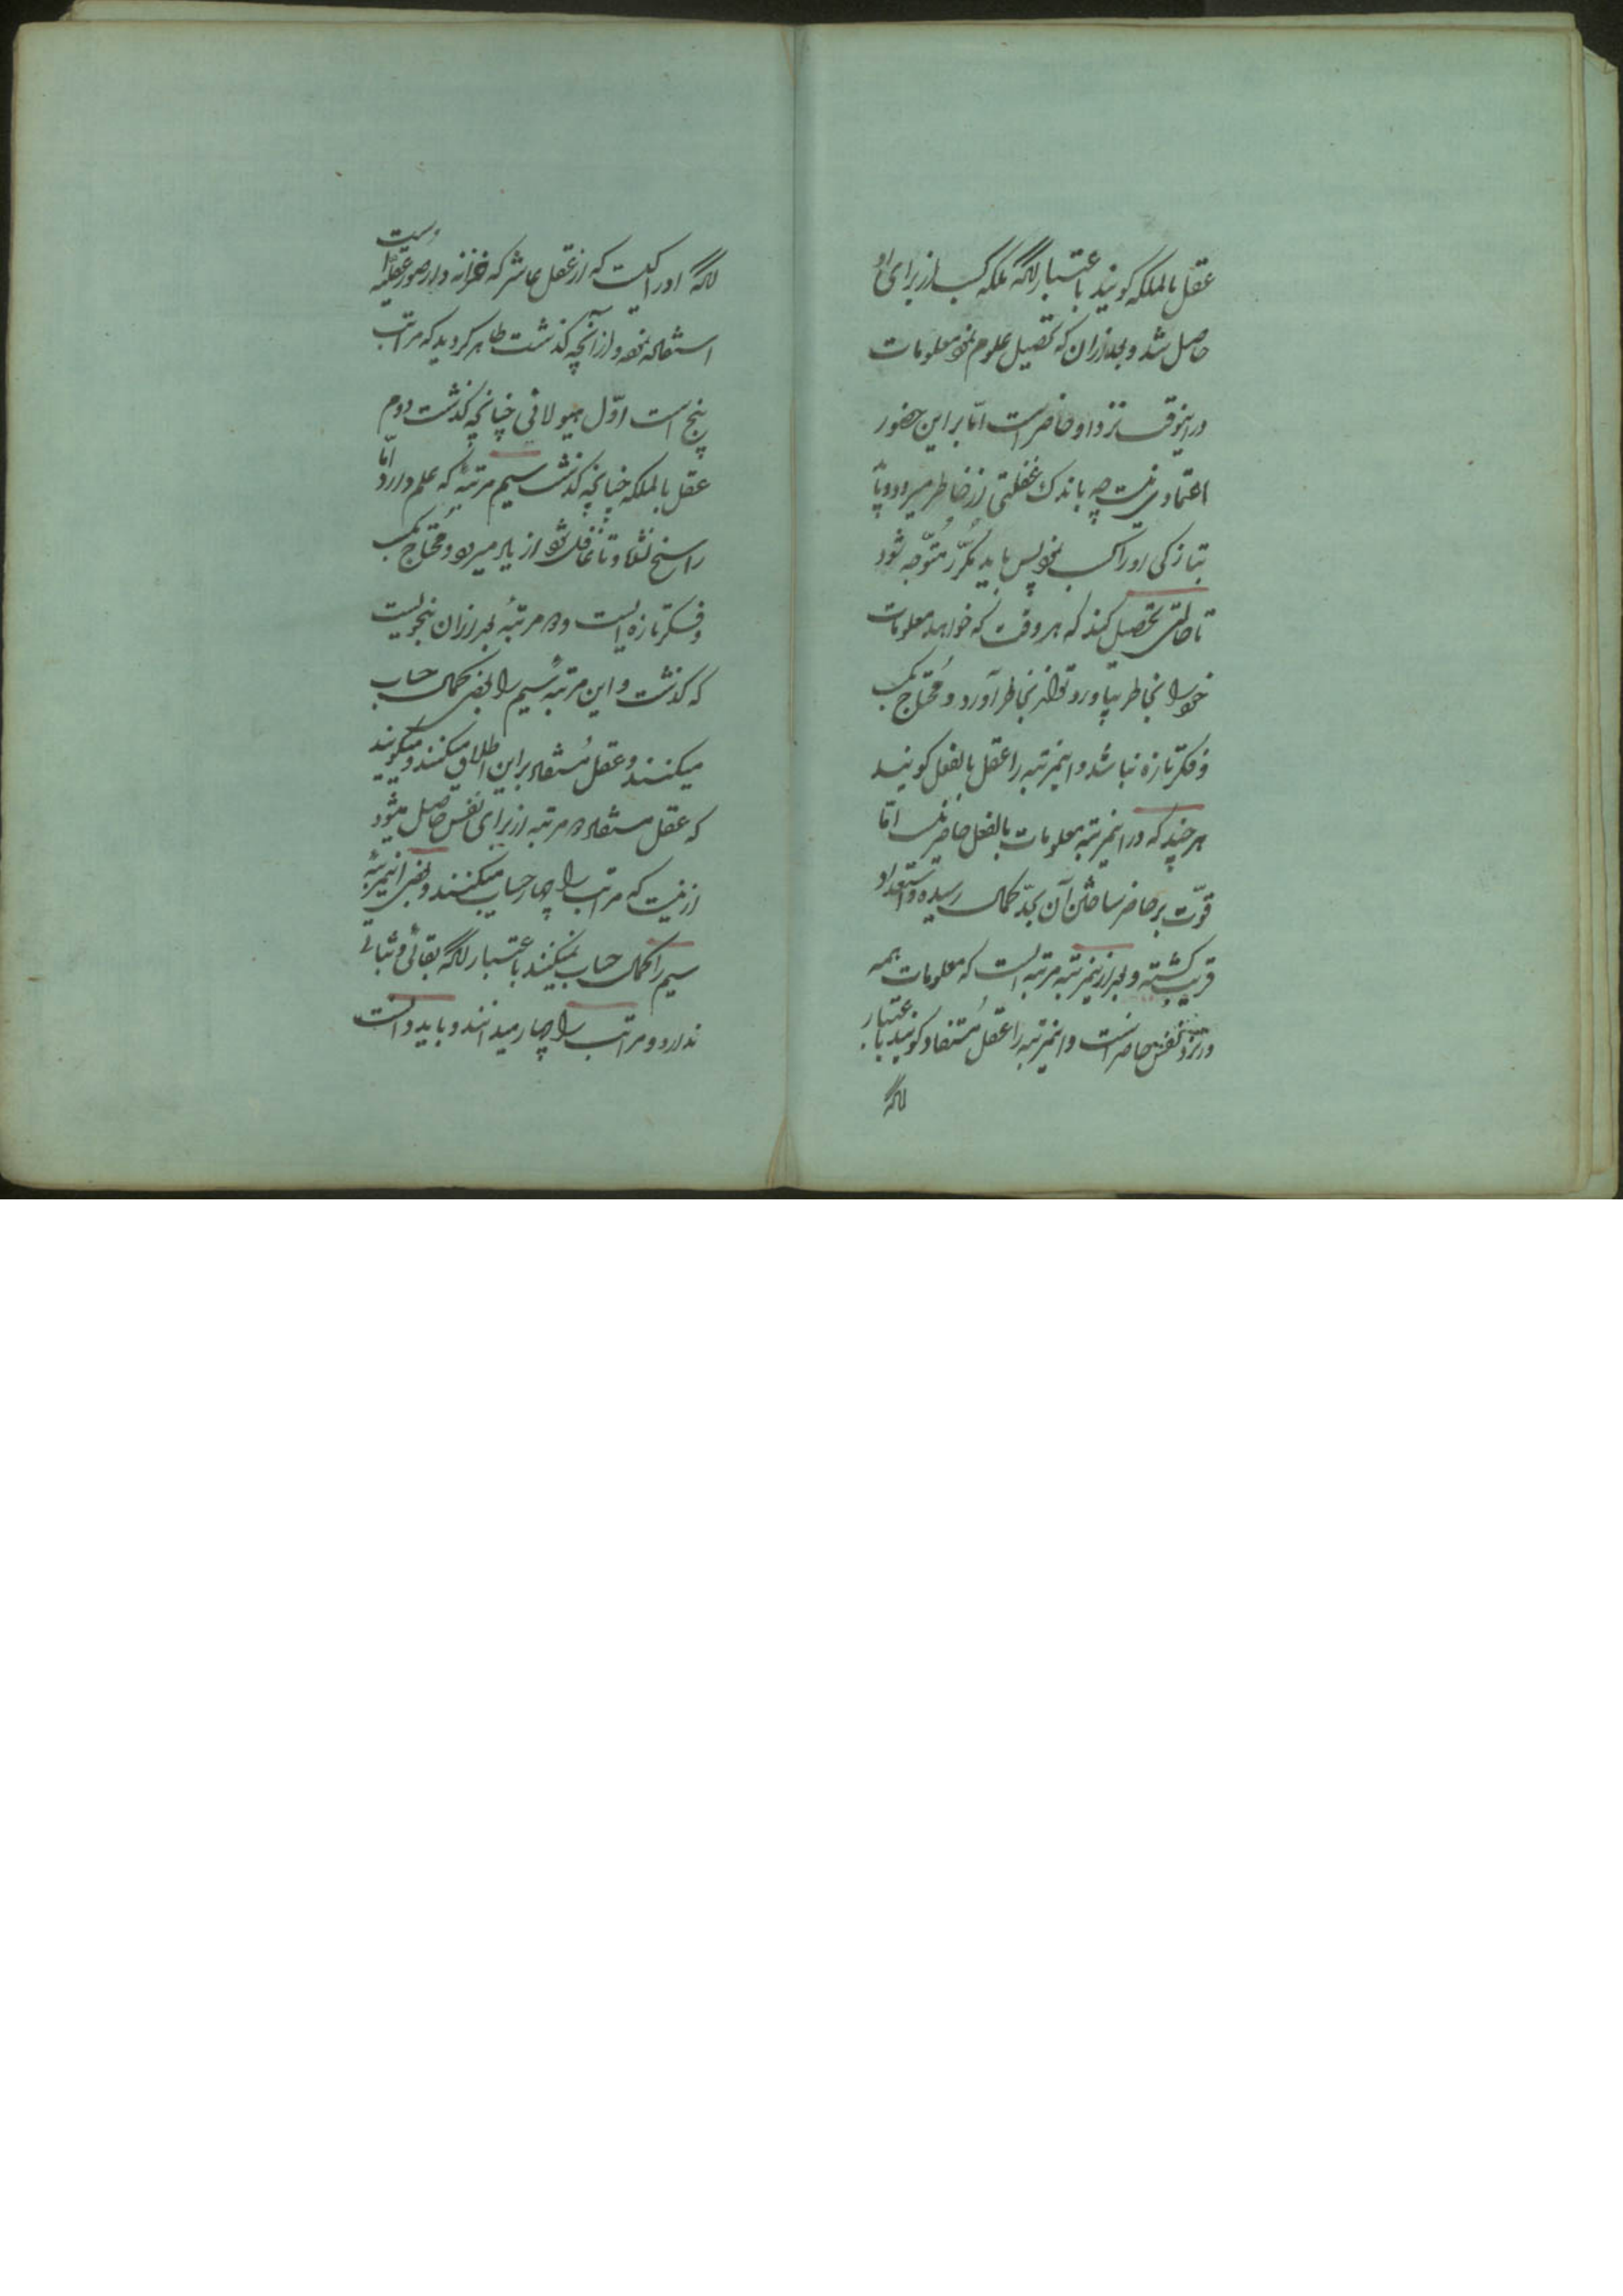 عقل بالملکه کویند باعتبار انکه ملکه کسب از برای او
حاصل شد و بعد ازان که تحصیل علوم نمود معلومات
در اینوقت نزد او حاضر است امّا بر این حضور
اعتمادی نیست چه باندک غفلتی از خاطر میرود و باید
بتازکی او را کسب نمود پس باید مُکرّر مُتوّجه شود
تا حالتی تحصیل کند که هر وقت که خواهد معلومات
خود را بخاطر بیاورد تواند بخاطر آورد و مُحتاج بکسب
و فکر تازه نباشد و اینمرتبه را عقل بالفعل کویند
هر چند که در اینمرتبه معلومات بالفعل حاضر نیست امّا
قوّت بر حاضر ساختن آن بحدّ کمال رسیده و استعداد
قریب کشته و بعد از اینمرتبه مرتبه ایست که معلومات همه
در نزد نفس حاضر است و اینمرتبه را عقل مُستفاد کویند باعتبار
انکه
انکه او را کسب که از عقل عاشر که خزانه دار صور عقلیه است
استفاده نموده و از آنچه کذشت ظاهر کردید که مراتب
پنج است اوّل هیولانی چنانچه کذشت دوم
عقل بالملکه چنانچه کذشت سیم مرتبهٔ که علم دارد امّا
راسخ نشده و تا غافل شود از یاد میرود و مُحتاج بکسب
و فکر تازه است و دو مرتبهٔ بعد ازان بنحویست
که کذشت و این مرتبهٔ سیم را بعضی کمال حساب
میکنند و عقل مُستفاد بر این اطلاق میکنند و میکویند
که عقل مستفاد دو مرتبه از برای نفس حاصل میشود
ازینست که مراتب را چهار حساب میکنند و بعضی اینمرتبهٔ
سیم را کمال حساب نمیکنند باعتبار انکه بقائی و ثباتی
ندارد و مراتب را چهار میدانند و باید دانست